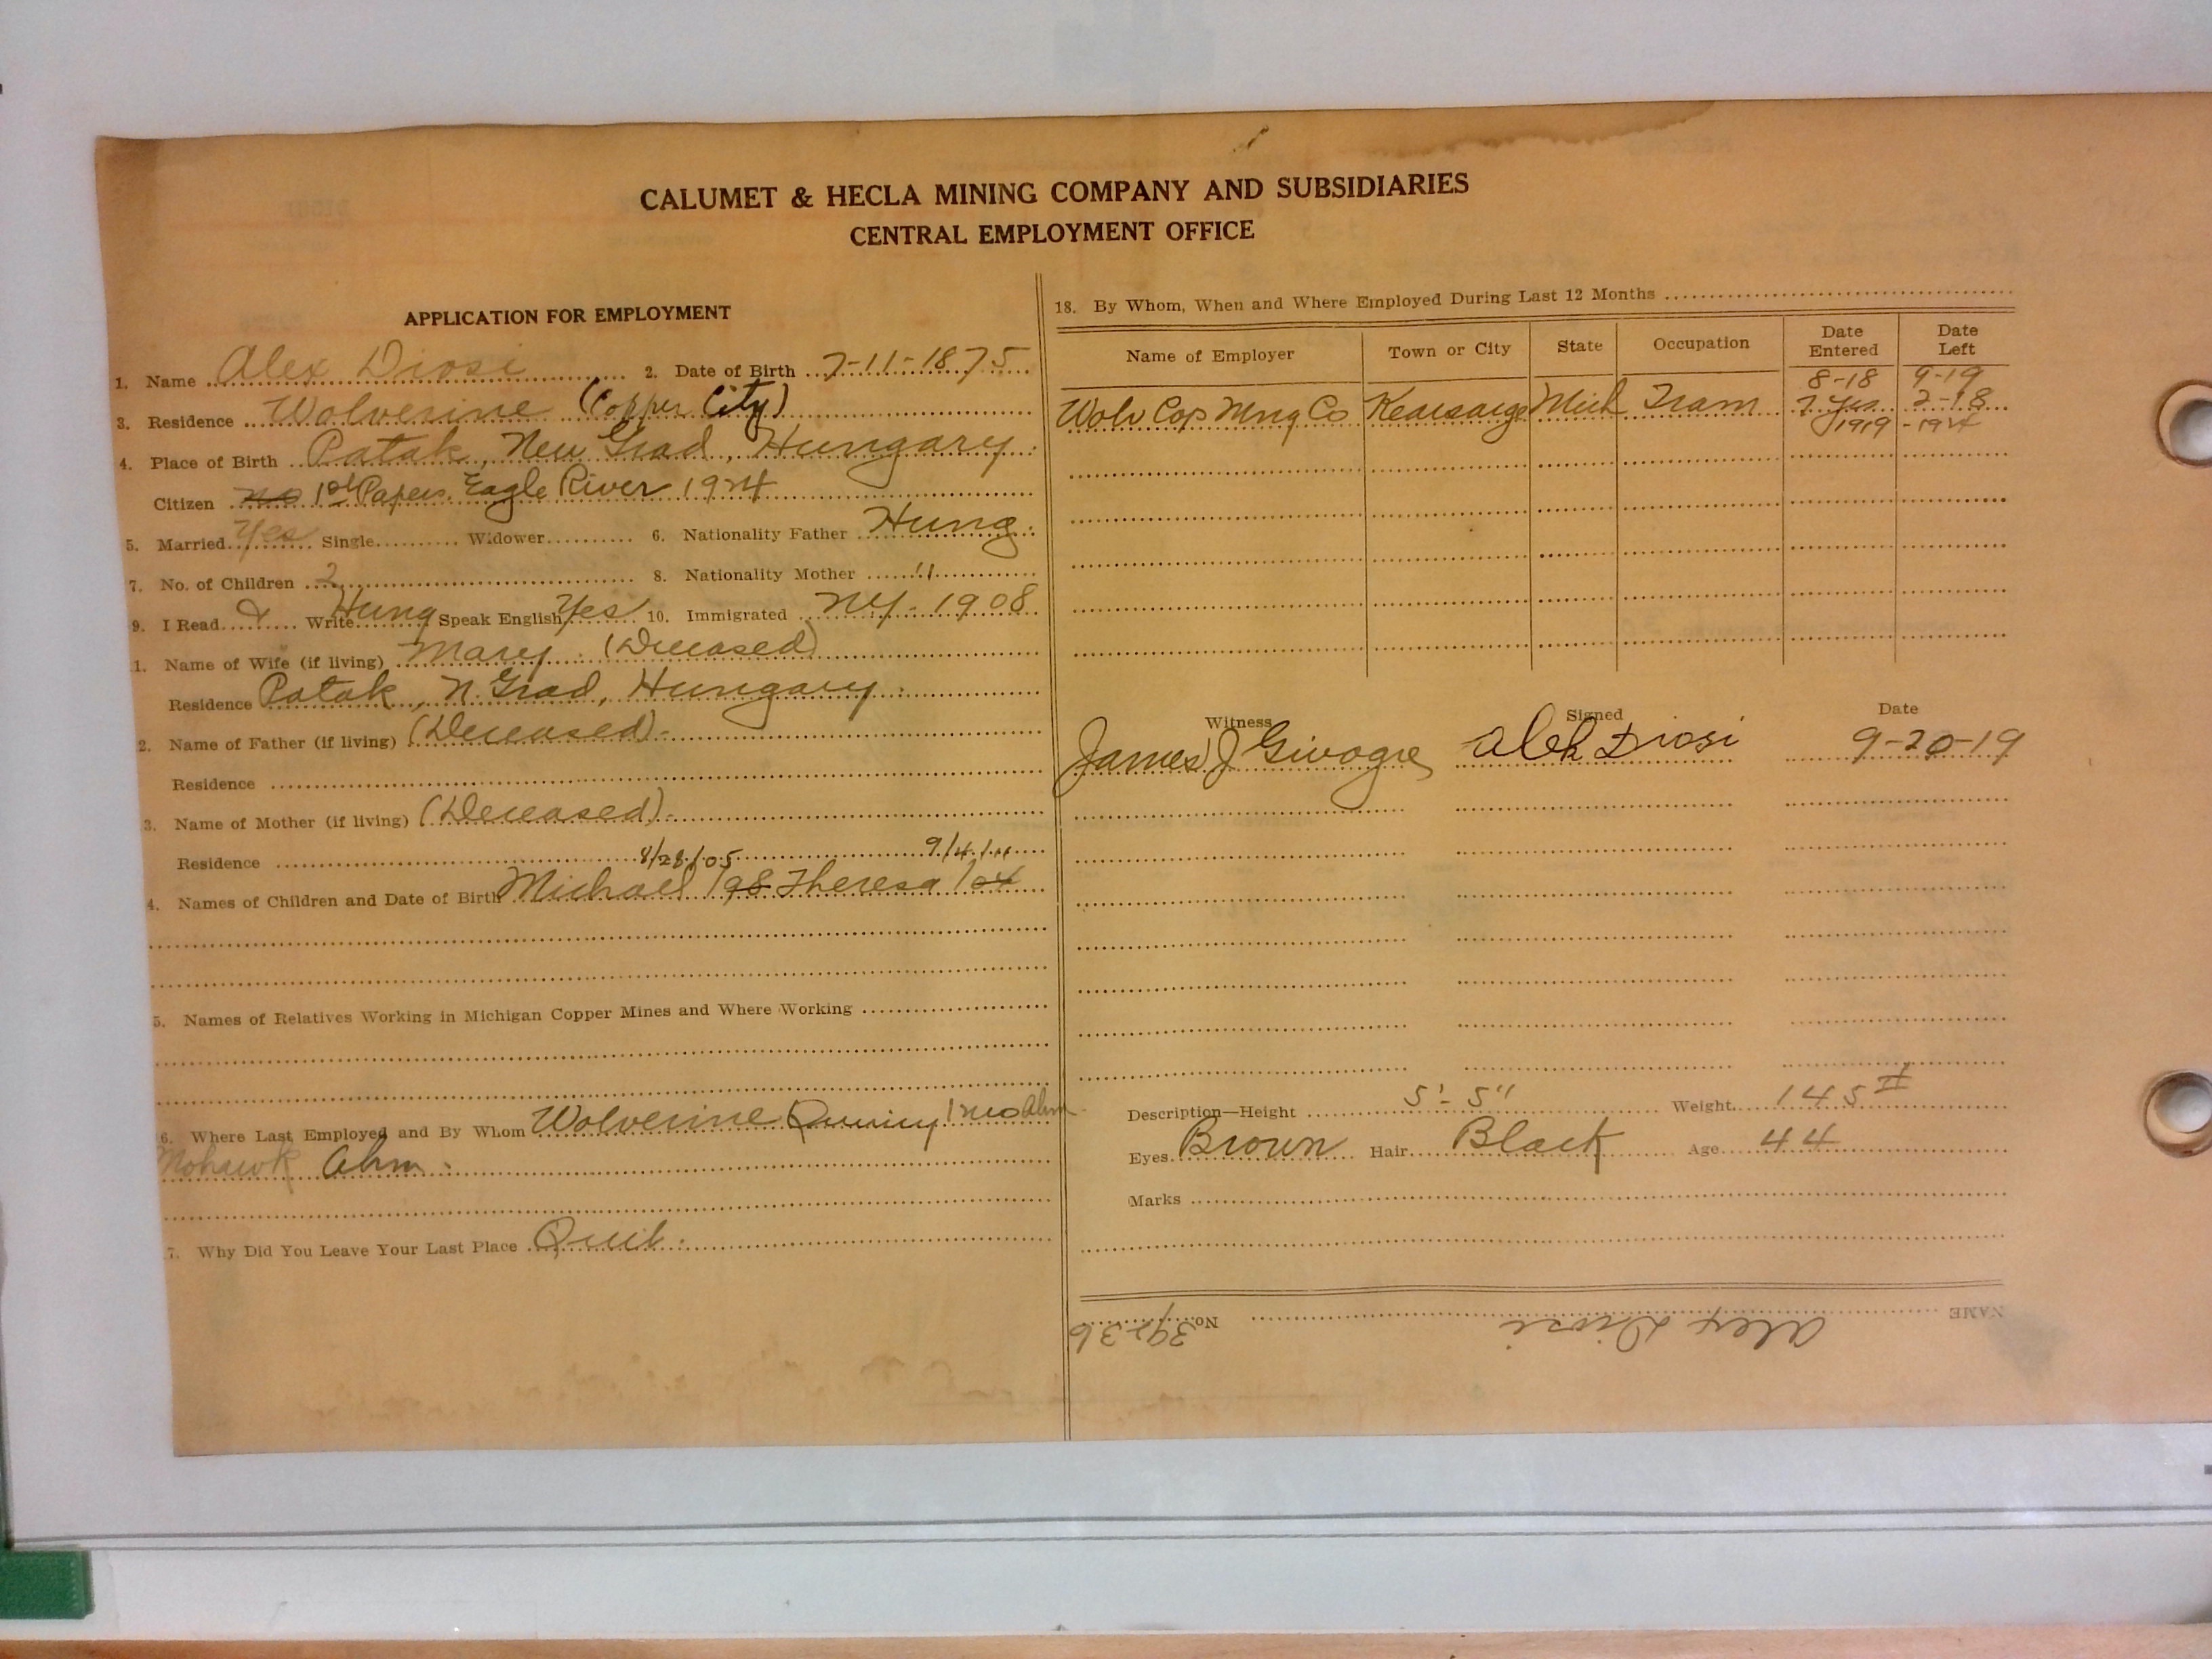 CALUMET & HECLA MINING COMPANY AND SUBSIDIARIES
CENTRAL EMPLOYMENT OFFICE
APPLICATION FOR EMPLOYMENT
1. Name Alex Diosi 2. Date of Birth 7-11-1875
3. Residence Wolverine (Copper City)
4. Place of Birth Patak, New Grad, Hungary
Citizen no 1st Papers Eagle River 1924
5. Married Yes Single Widower 6. Nationality Father Hung.
7. No. of Children 2 8. Nationality Mother "
9. I Read & Write Hung Speak English Yes 10. Immigrated NY-1908
1. Name of Wife (if living) Mary (Deceased)
Residence Patak, N. Grad, Hungary
2. Name of Father (if living) (Deceased)-
Residence
3. Name of Mother (if living) (Deceased)-
Residence
8/28/05 9/4/
4. Names of Children and Date of Birth Michael /98 Theresa /04
5. Names of Relatives Working in Michigan Copper Mines and Where Working
6. Where Last Employed and By Whom Wolverine Quincy 1 mo Ahm
Mohawk Ahm.
7. Why Did You Leave Your Last Place Quit.
18. By Whom, When and Where Employed During Last 12 Months
Name of Employer Town or City State Occupation Date Entered Date Left
8-18 9-19
Wolv Cop Mng Co Kearsarge Mich Tram 7 yrs 2-18
1919 -1924
Witness Signed Date
James J Givogre Alek Diosi 9-20-19
Description—Height 5'-5" Weight 145#
Eyes Brown Hair Black Age 44
Marks
NAME Alex Diosi No. 39236